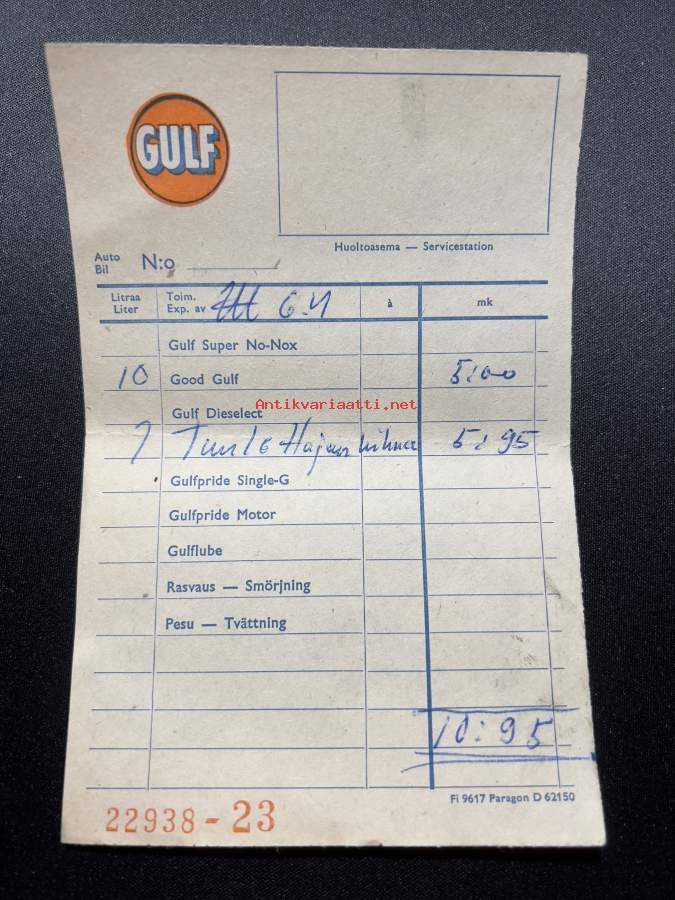 GULF
Huoltoasema — Servicestation
Auto
Bil
N:o
Litraa
Liter
Toim.
Exp. av
à
mk
Gulf Super No-Nox
10 Good Gulf 5:00
Antikvariaatti.net
Gulf Dieselect
5:95
Gulfpride Single-G
Gulfpride Motor
Gulflube
Rasvaus — Smörjning
Pesu — Tvättning
10:95
Fi 9617 Paragon D 62150
22938 - 23